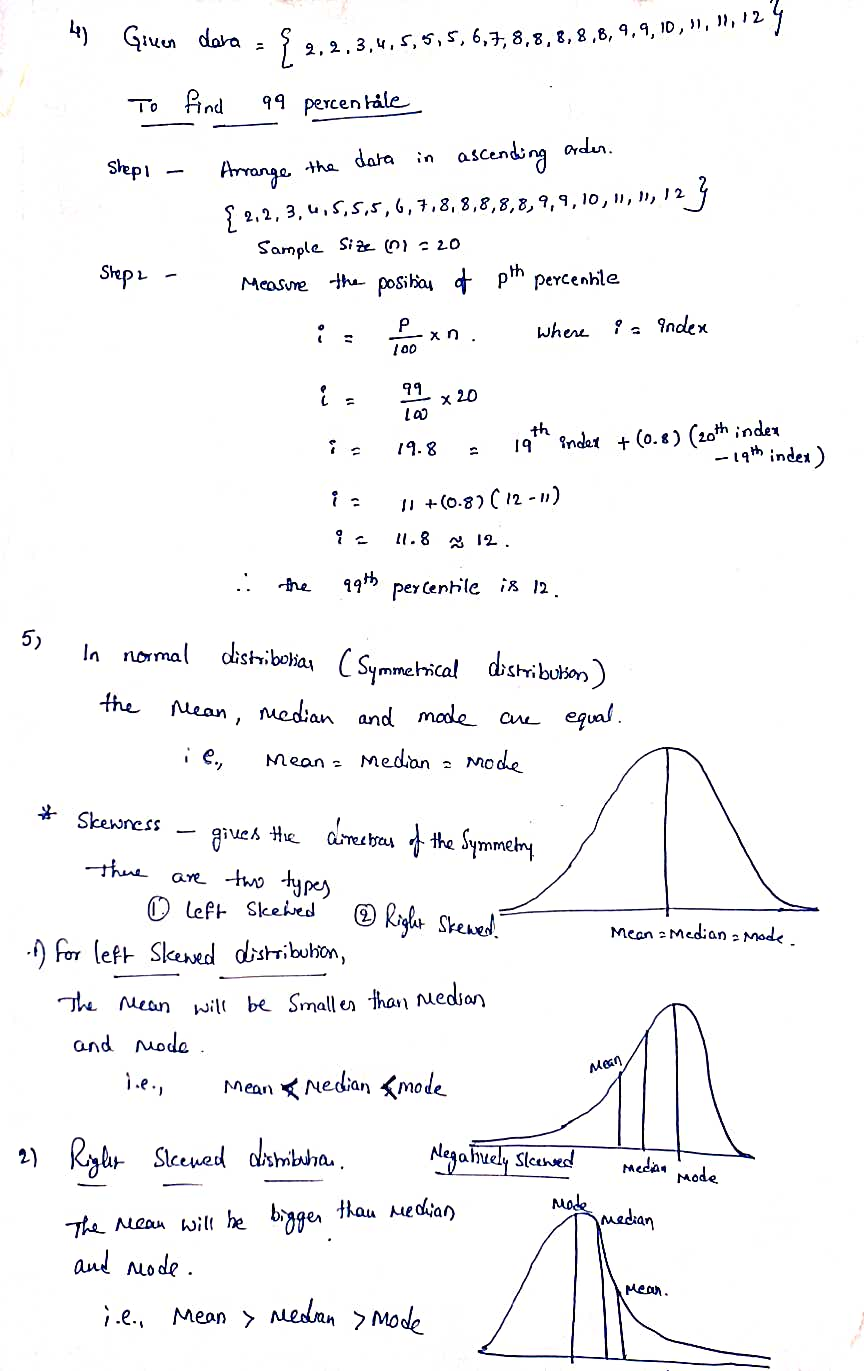 4) Given data = { 2,2,3,4,5,5,5,6,7,8,8,8,8,8,9,9,10,11,11,12 }
To find 99 percentile
Step 1 — Arrange the data in ascending order.
{ 2,2,3,4,5,5,5,6,7,8,8,8,8,8,9,9,10,11,11,12 }
Sample Size (n) = 20
Step 2 - Measure the position of pth percentile
i = P/100 × n. where i = index
i = 99/100 × 20
i = 19.8 = 19th index + (0.8) (20th index
– 19th index)
i = 11 + (0.8) (12 - 11)
i = 11.8 ≈ 12.
∴ the 99th percentile is 12.
5) In normal distribution (Symmetrical distribution)
the Mean, Median and mode are equal.
i e., Mean = Median = Mode
* Skewness — gives the direction of the Symmetry
There are two types
① Left Skewed ② Right Skewed.
Mean = Median = Mode.
1) For left Skewed distribution,
The Mean will be Smaller than Median
and Mode.
i.e., Mean < Median < mode
Mean
Negatively Skewed
Median
Mode
2) Right Skewed distribution.
The Mean will be bigger than Median
and Mode.
i.e., Mean > Median > Mode
Mode
Median
Mean.